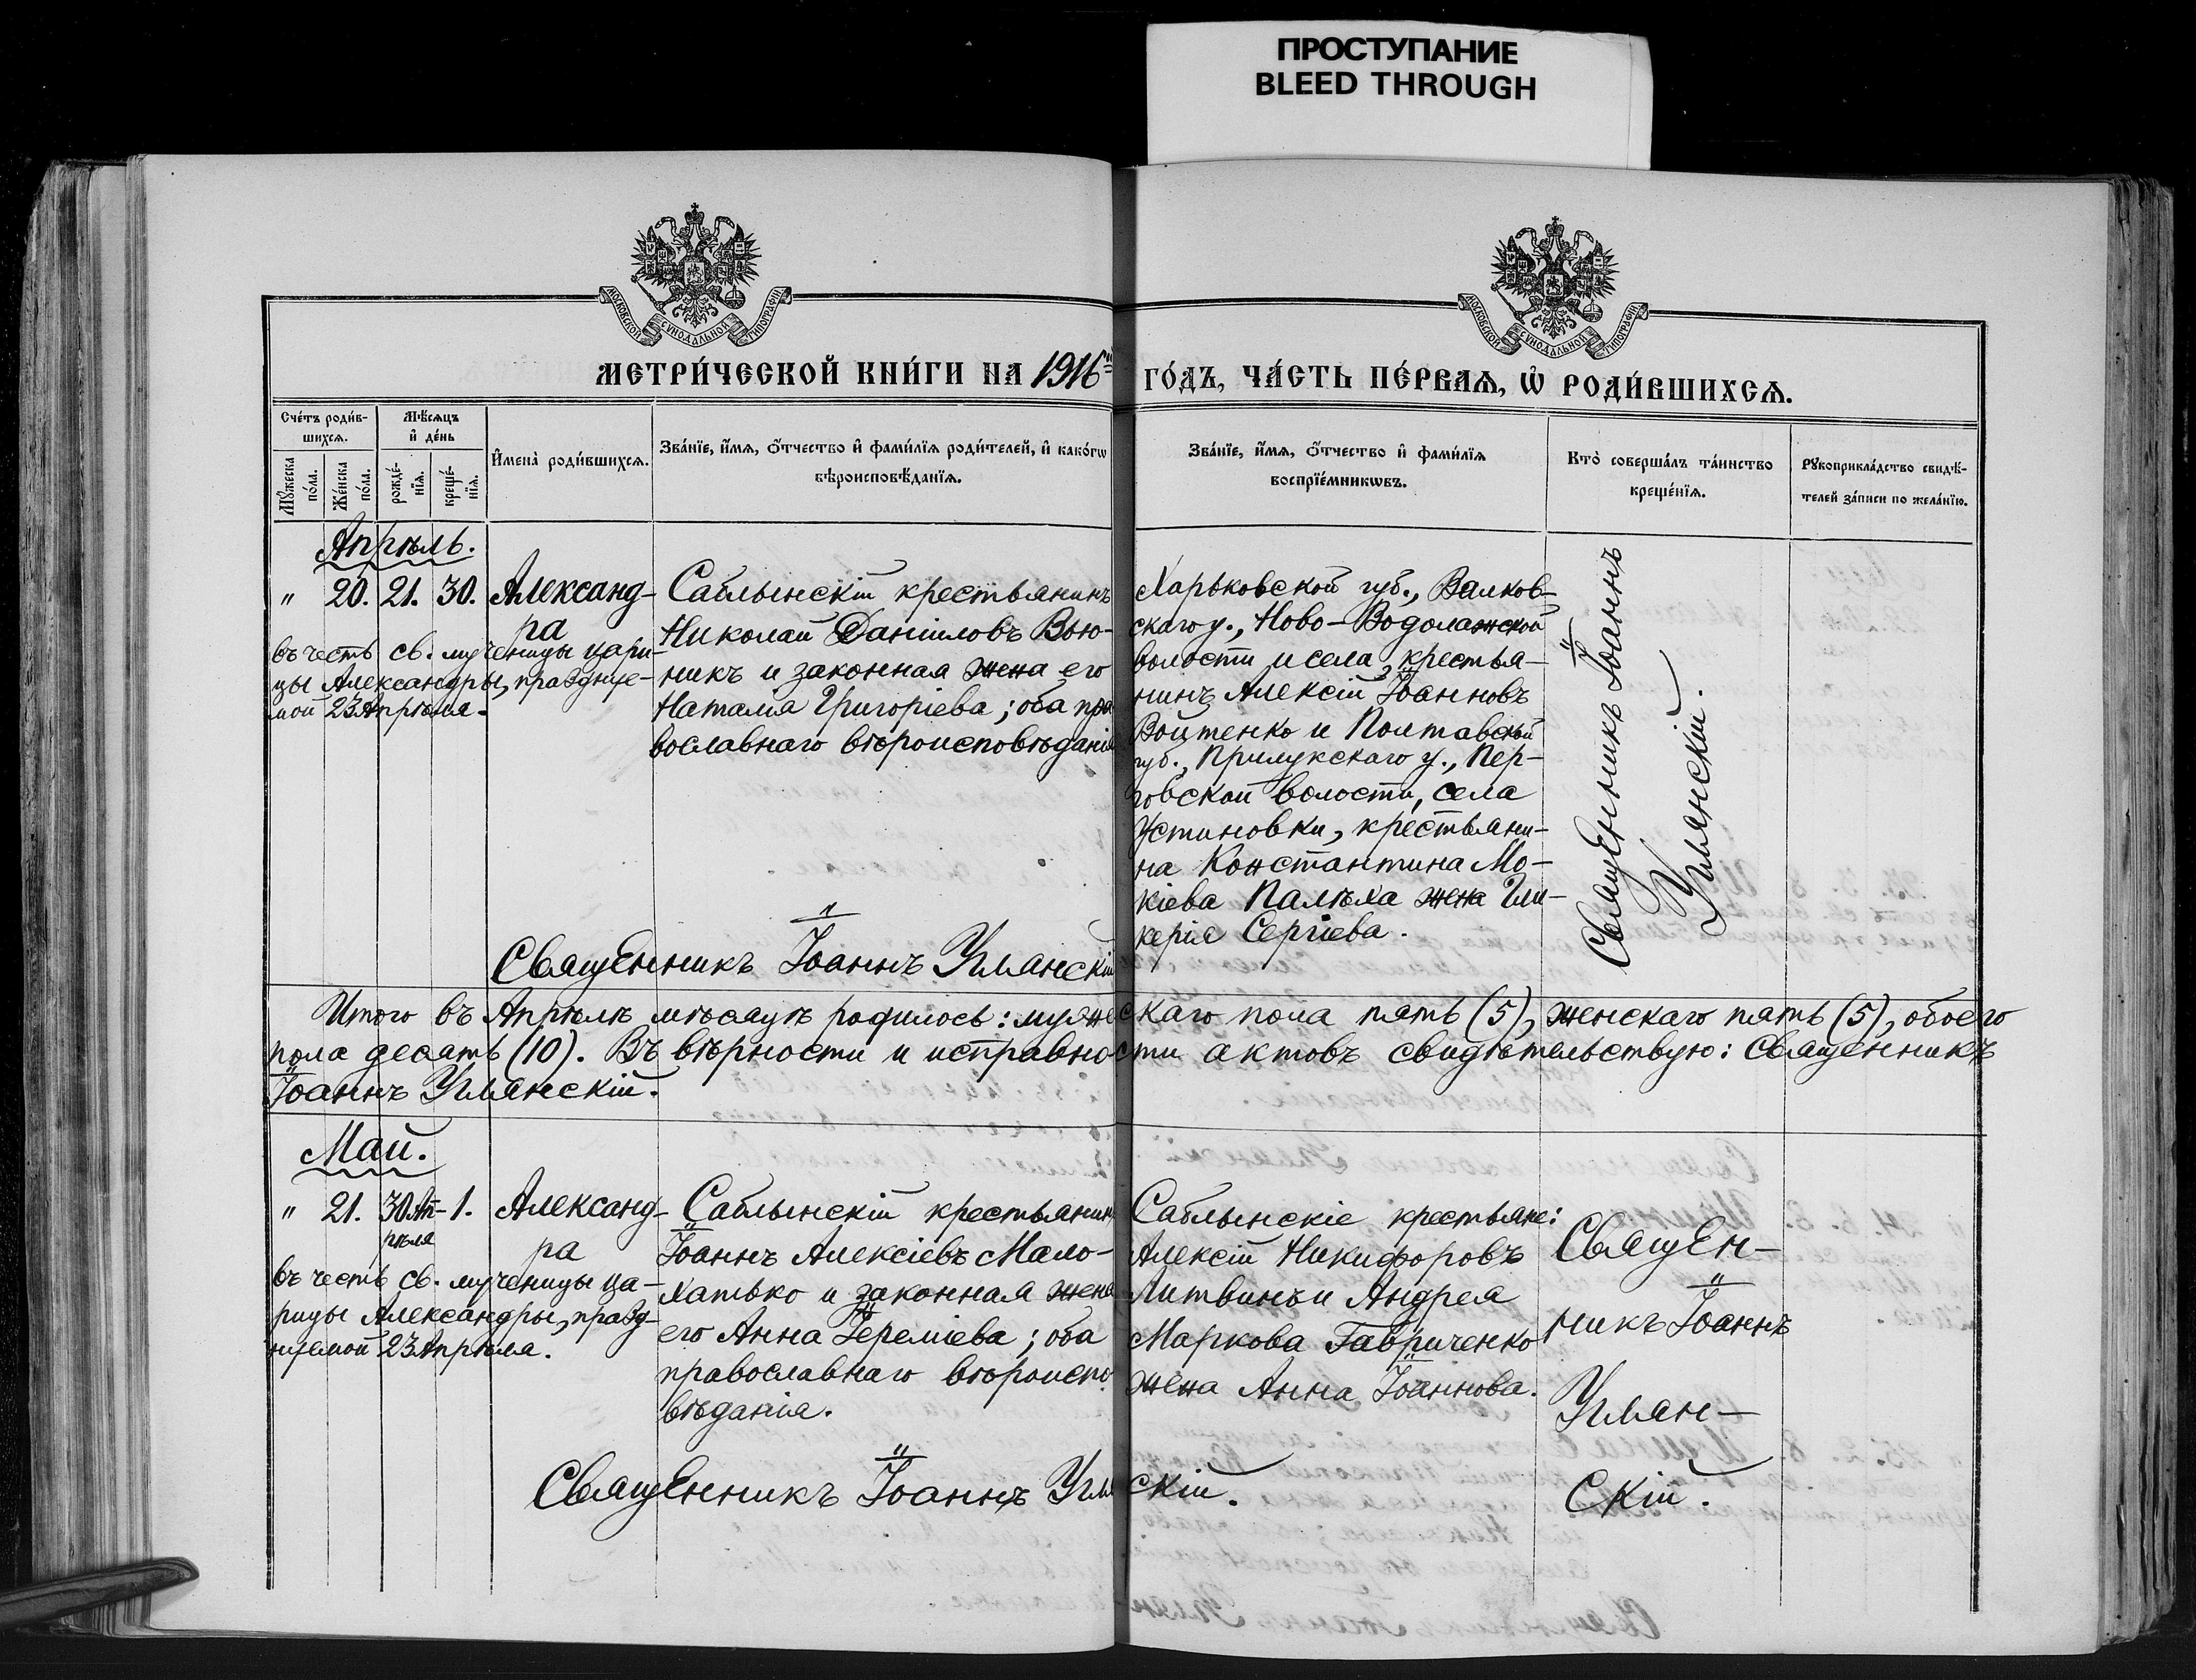 ПРОСТУПАНИЕ
BLEED THROUGH
МОСКОВСКОЙ СѴНОДАЛЬНОЙ ТИПОГРАФІИ
МОСКОВСКОЙ СѴНОДАЛЬНОЙ ТИПОГРАФІИ
МЕТРИ́ЧЕСКОЙ КНИ́ГИ НА 1916й ГО́ДЪ, ЧА́СТЬ ПЕ́РВАѦ, Ѡ҆ РОДИ́ВШИХСѦ.
Сче́тъ роди́в-
шихсѧ.
Мѣ́сѧцъ
и҆ де́нь
Мꙋ́жеска
по́ла.
Же́нска
по́ла.
рожде́-
нїѧ.
креще́-
нїѧ.
И҆мена̀ роди́вшихсѧ.
Зва́нїе, и҆́мѧ, ѻ҆́тчество и҆ фами́лїѧ роди́телей, и҆ како́гѡ
вѣроисповѣ́данїѧ.
Зва́нїе, и҆́мѧ, ѻ҆́тчество и҆ фами́лїѧ
воспрїе́мникѡвъ.
Кто̀ соверша́лъ та́инство
креще́нїѧ.
Рꙋкоприкла́дство свидѣ́-
телей за́писи по жела́нїю.
Апрѣль.
" 20. 21. 30. Александ-
ра
въ честь св. мученицы цари-
цы Александры, празднуе-
мой 23 Апрѣля.
Саблынскій крестьянинъ
Николай Даніиловъ Вью-
никъ и законная жена его
Наталія Григоріева; оба пра
вославнаго вѣроисповѣданія
Харьковской губ., Валков-
скаго у., Ново-Водолажской
волости и села, крестья-
нинъ Алексій Іоанновъ
Войтенко и Полтавской
губ., Прилукскаго у., Пер-
говской волости, села
Устиновки, крестьяни-
на Константина Мо-
кіева Палѣха жена Гли-
керія Сергіева.
Священникъ Іоаннъ
Уманскій.
Священникъ Іоаннъ Уманскій
Итого въ Апрѣлѣ мѣсяцѣ родилось: мужескаго пола пять (5), женскаго пять (5), обоего
пола десять (10). Въ вѣрности и исправности актовъ свидѣтельствую: Священникъ
Іоаннъ Уманскій.
Май.
" 21. 30 Ап- 1. Александ-
рѣля ра
въ честь св. мученицы ца-
рицы Александры, празд-
нуемой 23 Апрѣля.
Саблынскій крестьянин
Іоаннъ Алексіевъ Мало-
хатько и законная жена
его Анна Іереміева; оба
православнаго вѣроиспо
вѣданія.
Саблынскіе крестьяне:
Алексій Никифоровъ
Литвинъ и Андрея
Маркова Гавриченко
жена Анна Іоаннова.
Священ-
никъ Іоаннъ
Уман-
скій.
Священникъ Іоаннъ Уманскій.